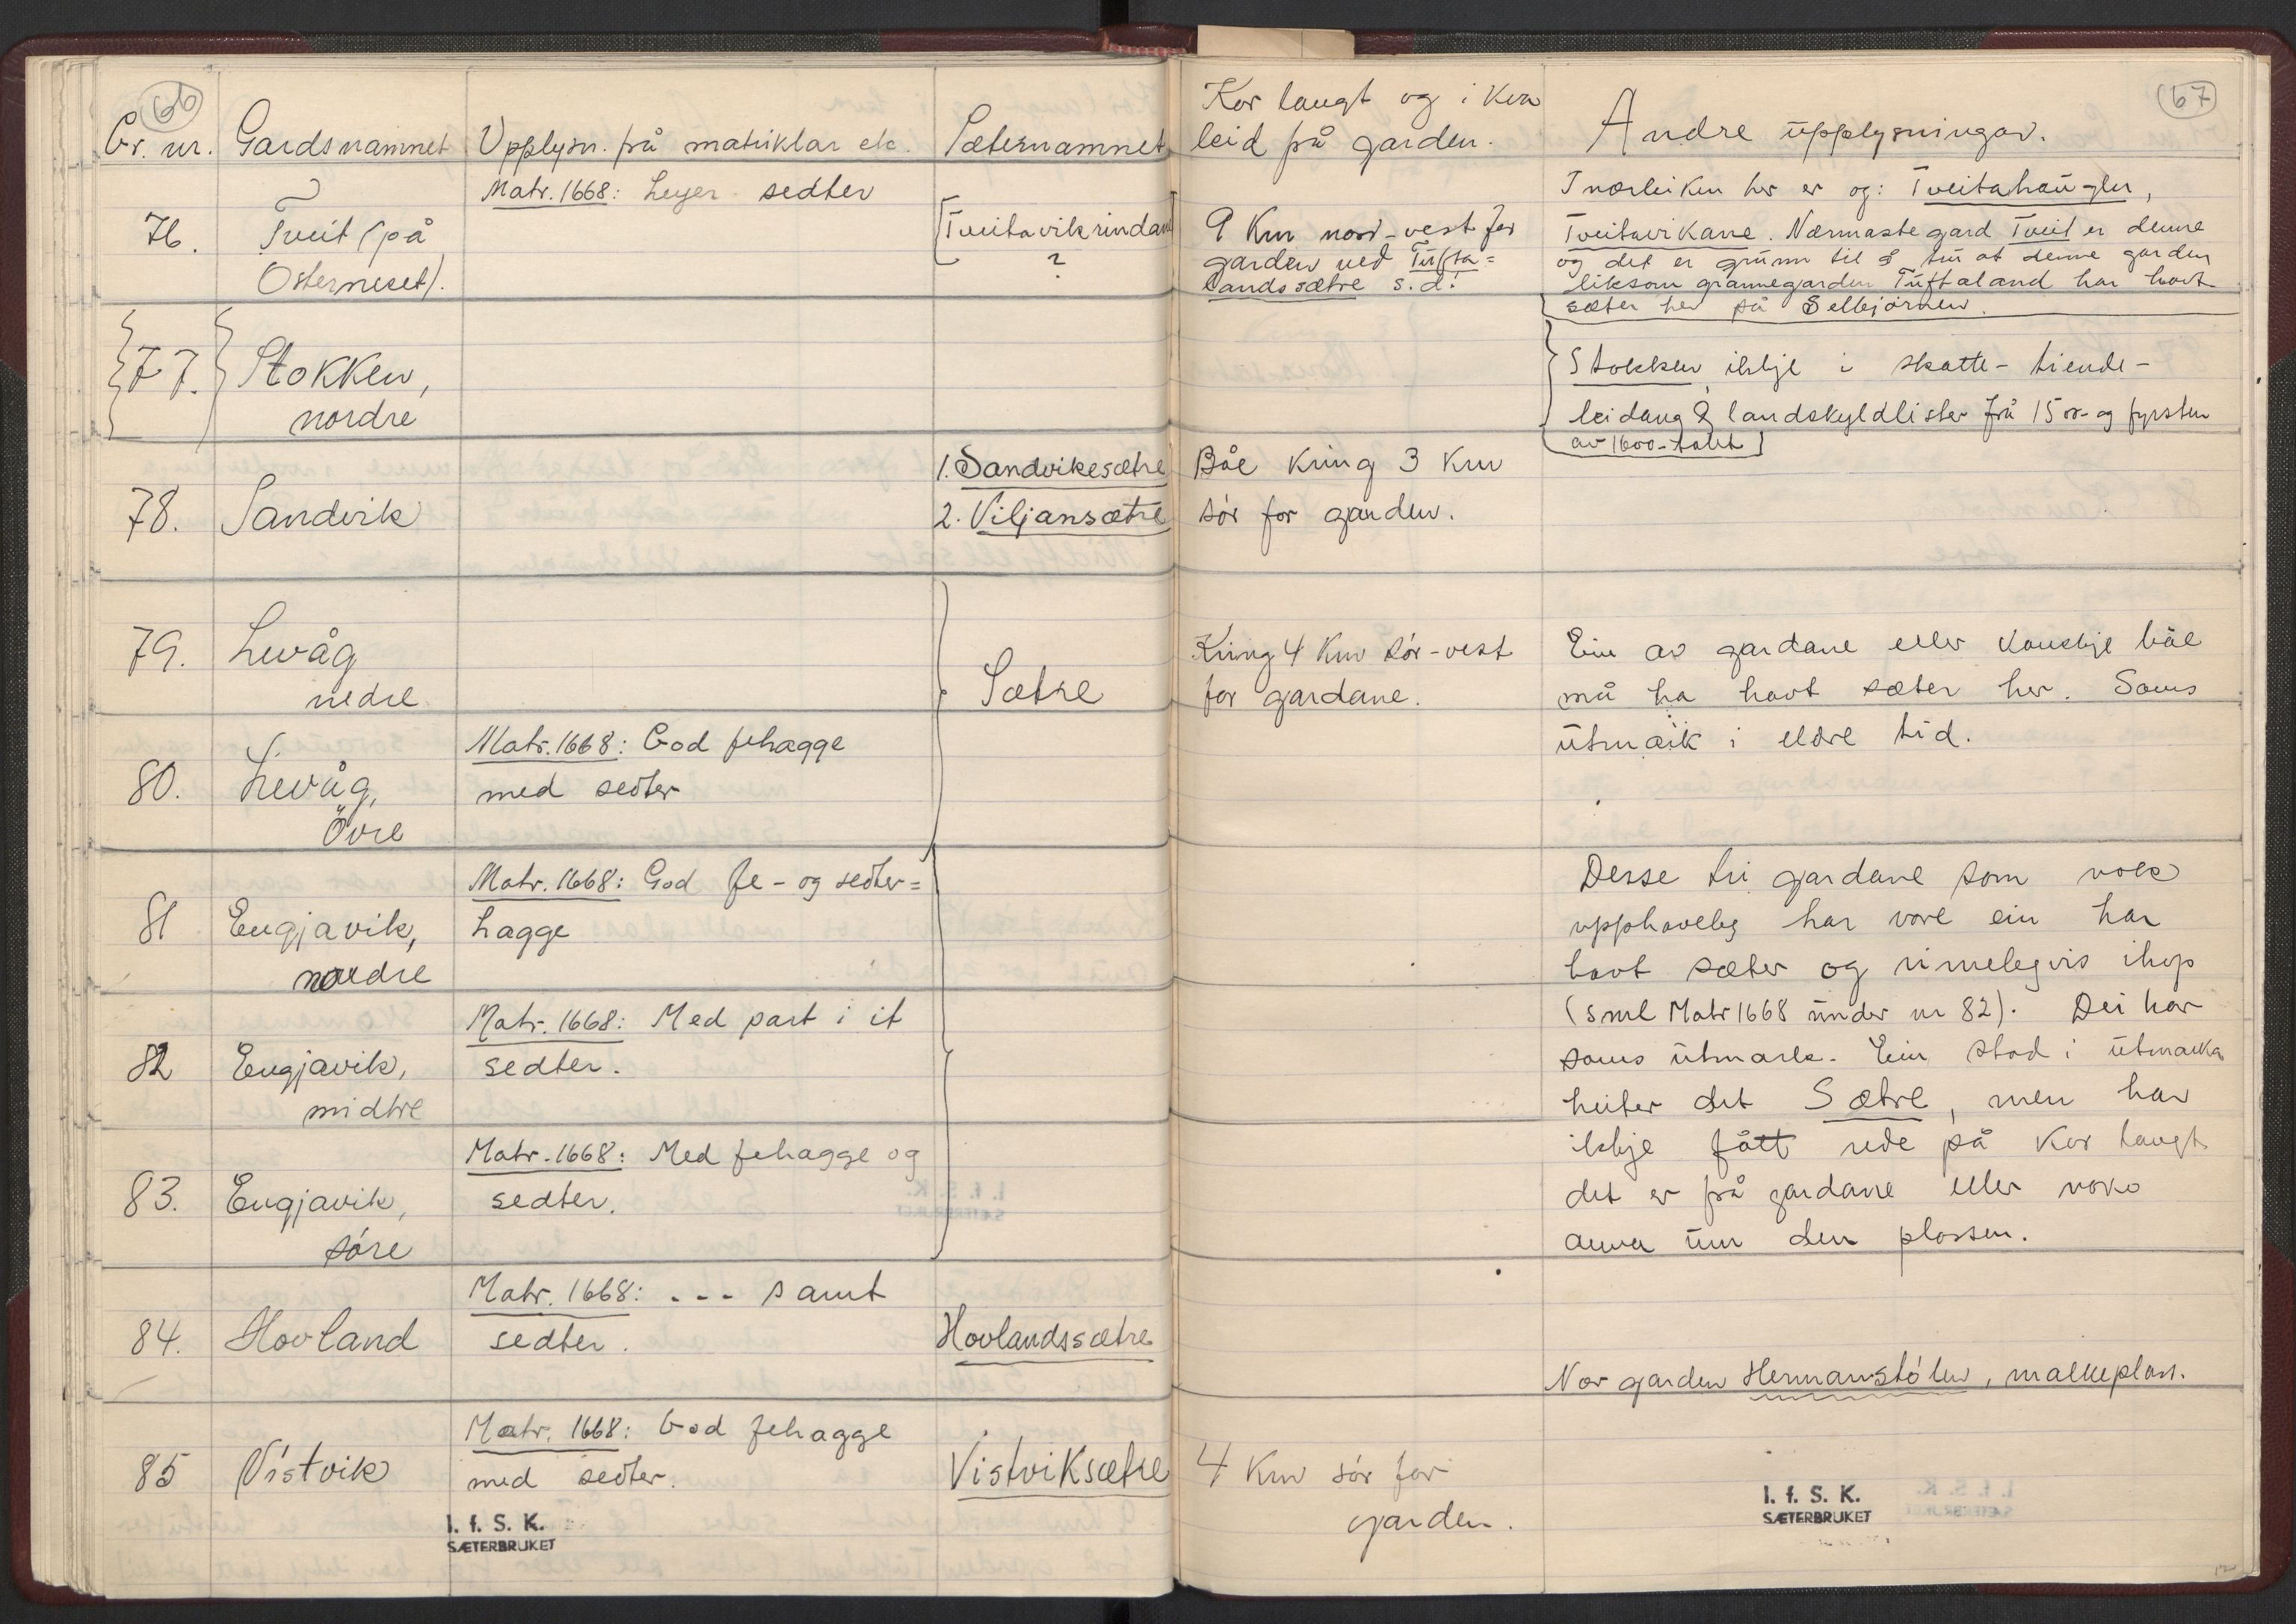 66
Gr. nr. Gardsnamnet Upplysn. frå matriklar etc. Sæternamnet
Matr. 1668: Leger sedter
76. Tveit (på [Tveitavikrindane]
Osterneset). ?
77. Stokken,
nordre
1. Sandvikesætre
78. Sandvik 2. Viljansætre
79. Levåg
nedre Sætre
Matr. 1668: God fehagge
80. Levåg, med sedter
Övre
Matr. 1668: God fe- og sedter=
81 Engjavik, hagge
nordre
Matr. 1668: Med part i it
82 Engjavik, sedter.
midtre
Matr. 1668: Med fehagge og
83. Engjavik, sedter.
søre
Matr. 1668: --- samt
84. Hovland sedter. Hovlandssætre
Matr. 1668: God fehagge
85 Vistvik med sedter. Vistviksætre
I. f. S. K.
SÆTERBRUKET
67
Kor langt og i kva
leid på garden. Andre upplysningar.
I nærleiken her er og: Tveitahaugen,
9 Km nord-vest for Tveitavikane. Nærmaste gard Tveit er denne
garden ved Tufta= og det er grunn til å tru at denne garden
landssætre s.d! liksom grannegarden Tuftaland har havt
sæter her på Selbjörnen.
Stokken ikkje i skatte- tiende-
leidang & landskyldlister frå 1500- og fyrsten
av 1600-talet]
Båe kring 3 Km
sör for garden.
Kring 4 Km sör-vest Ein av gardane eller kanskje båe
for gardane. må ha havt sæter her. Sams
utmark i eldre tid.
Desse tri gardane som nok
upphavleg har vore ein har
havt sæter og rimelegvis ihop
(sml Matr 1668 under nr 82). Dei har
sams utmark. Ein stad i utmarka
heiter det Sætre, men har
ikkje fått rede på kor langt
det er frå gardane eller noko
anna um den plassen.
Nær garden Hermanstölen, malkeplass.
4 Km sör for
garden.
I. f. S. K.
SÆTERBRUKET